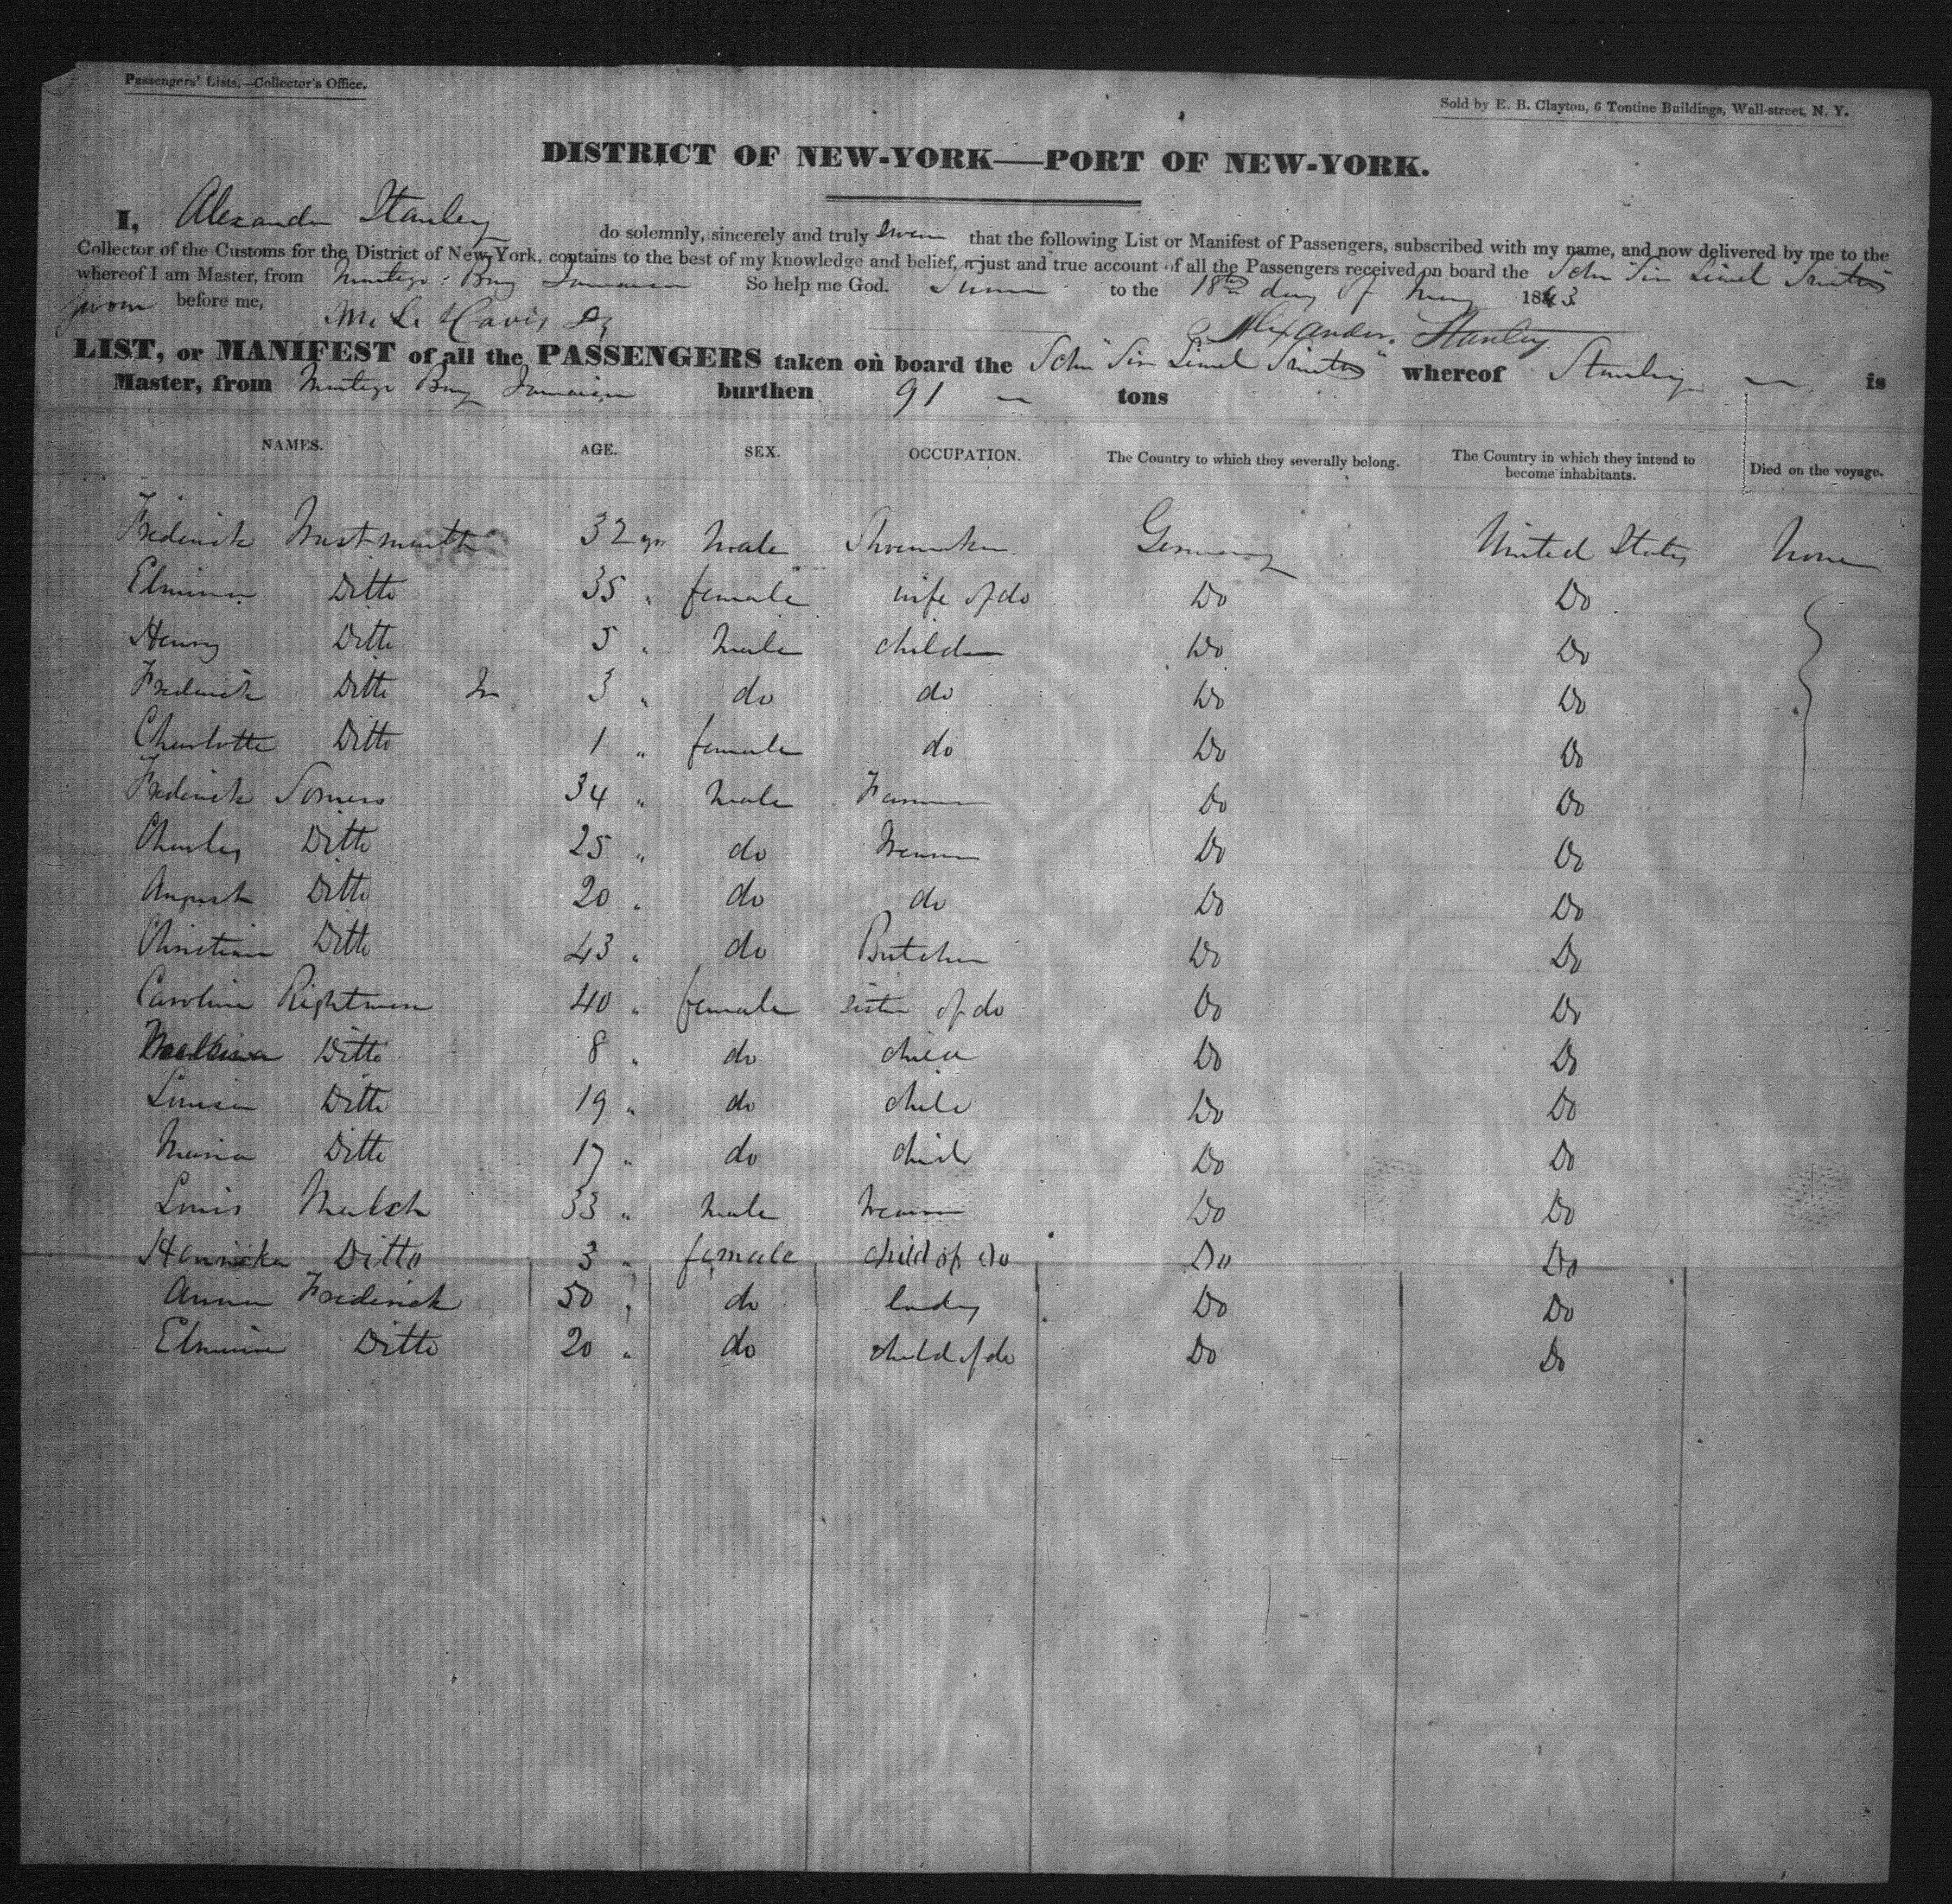 Passengers' Lists.—Collector's Office.
Sold by E. B. Clayton, 6 Tontine Buildings, Wall-street, N. Y.
DISTRICT OF NEW-YORK—PORT OF NEW-YORK.
I, Alexander Stanley do solemnly, sincerely and truly swear that the following List or Manifest of Passengers, subscribed with my name, and now delivered by me to the
Collector of the Customs for the District of New York, contains to the best of my knowledge and belief, a just and true account of all the Passengers received on board the Schr Sir Lionel Smith
whereof I am Master, from Montego Bay Jamaica So help me God. to the 18th day of May 1843
Sworn before me,
Alexander Stanley
LIST, or MANIFEST of all the PASSENGERS taken on board the Schr "Sir Lionel Smith" whereof Stanley is
Master, from Montego Bay Jamaica burthen 91 tons
NAMES. AGE. SEX. OCCUPATION. The Country to which they severally belong. The Country in which they intend to become inhabitants. Died on the voyage.
Frederick 32 yrs male Shoemaker Germany United States none
Ditto 35 " female wife of do Do Do
Henry Ditto 5 " male children Do Do
Frederick Ditto Jn 3 " do do Do Do
Charlotte Ditto 1 " female do Do Do
Frederick Somers 34 " male Farmer Do Do
Charles Ditto 25 " do Do Do
August Ditto 20 " do do Do Do
Christian Ditto 43 " do Butcher Do Do
Caroline Rightman 40 " female sister of do Do Do
Ditto 8 " do child Do Do
Louisa Ditto 19 " do child Do Do
Maria Ditto 17 " do child Do Do
Louis 33 " male Do Do
Ditto 3 " female child of do Do Do
Anna Frederick 50 " do lady Do Do
Ditto 20 " do child of do Do Do